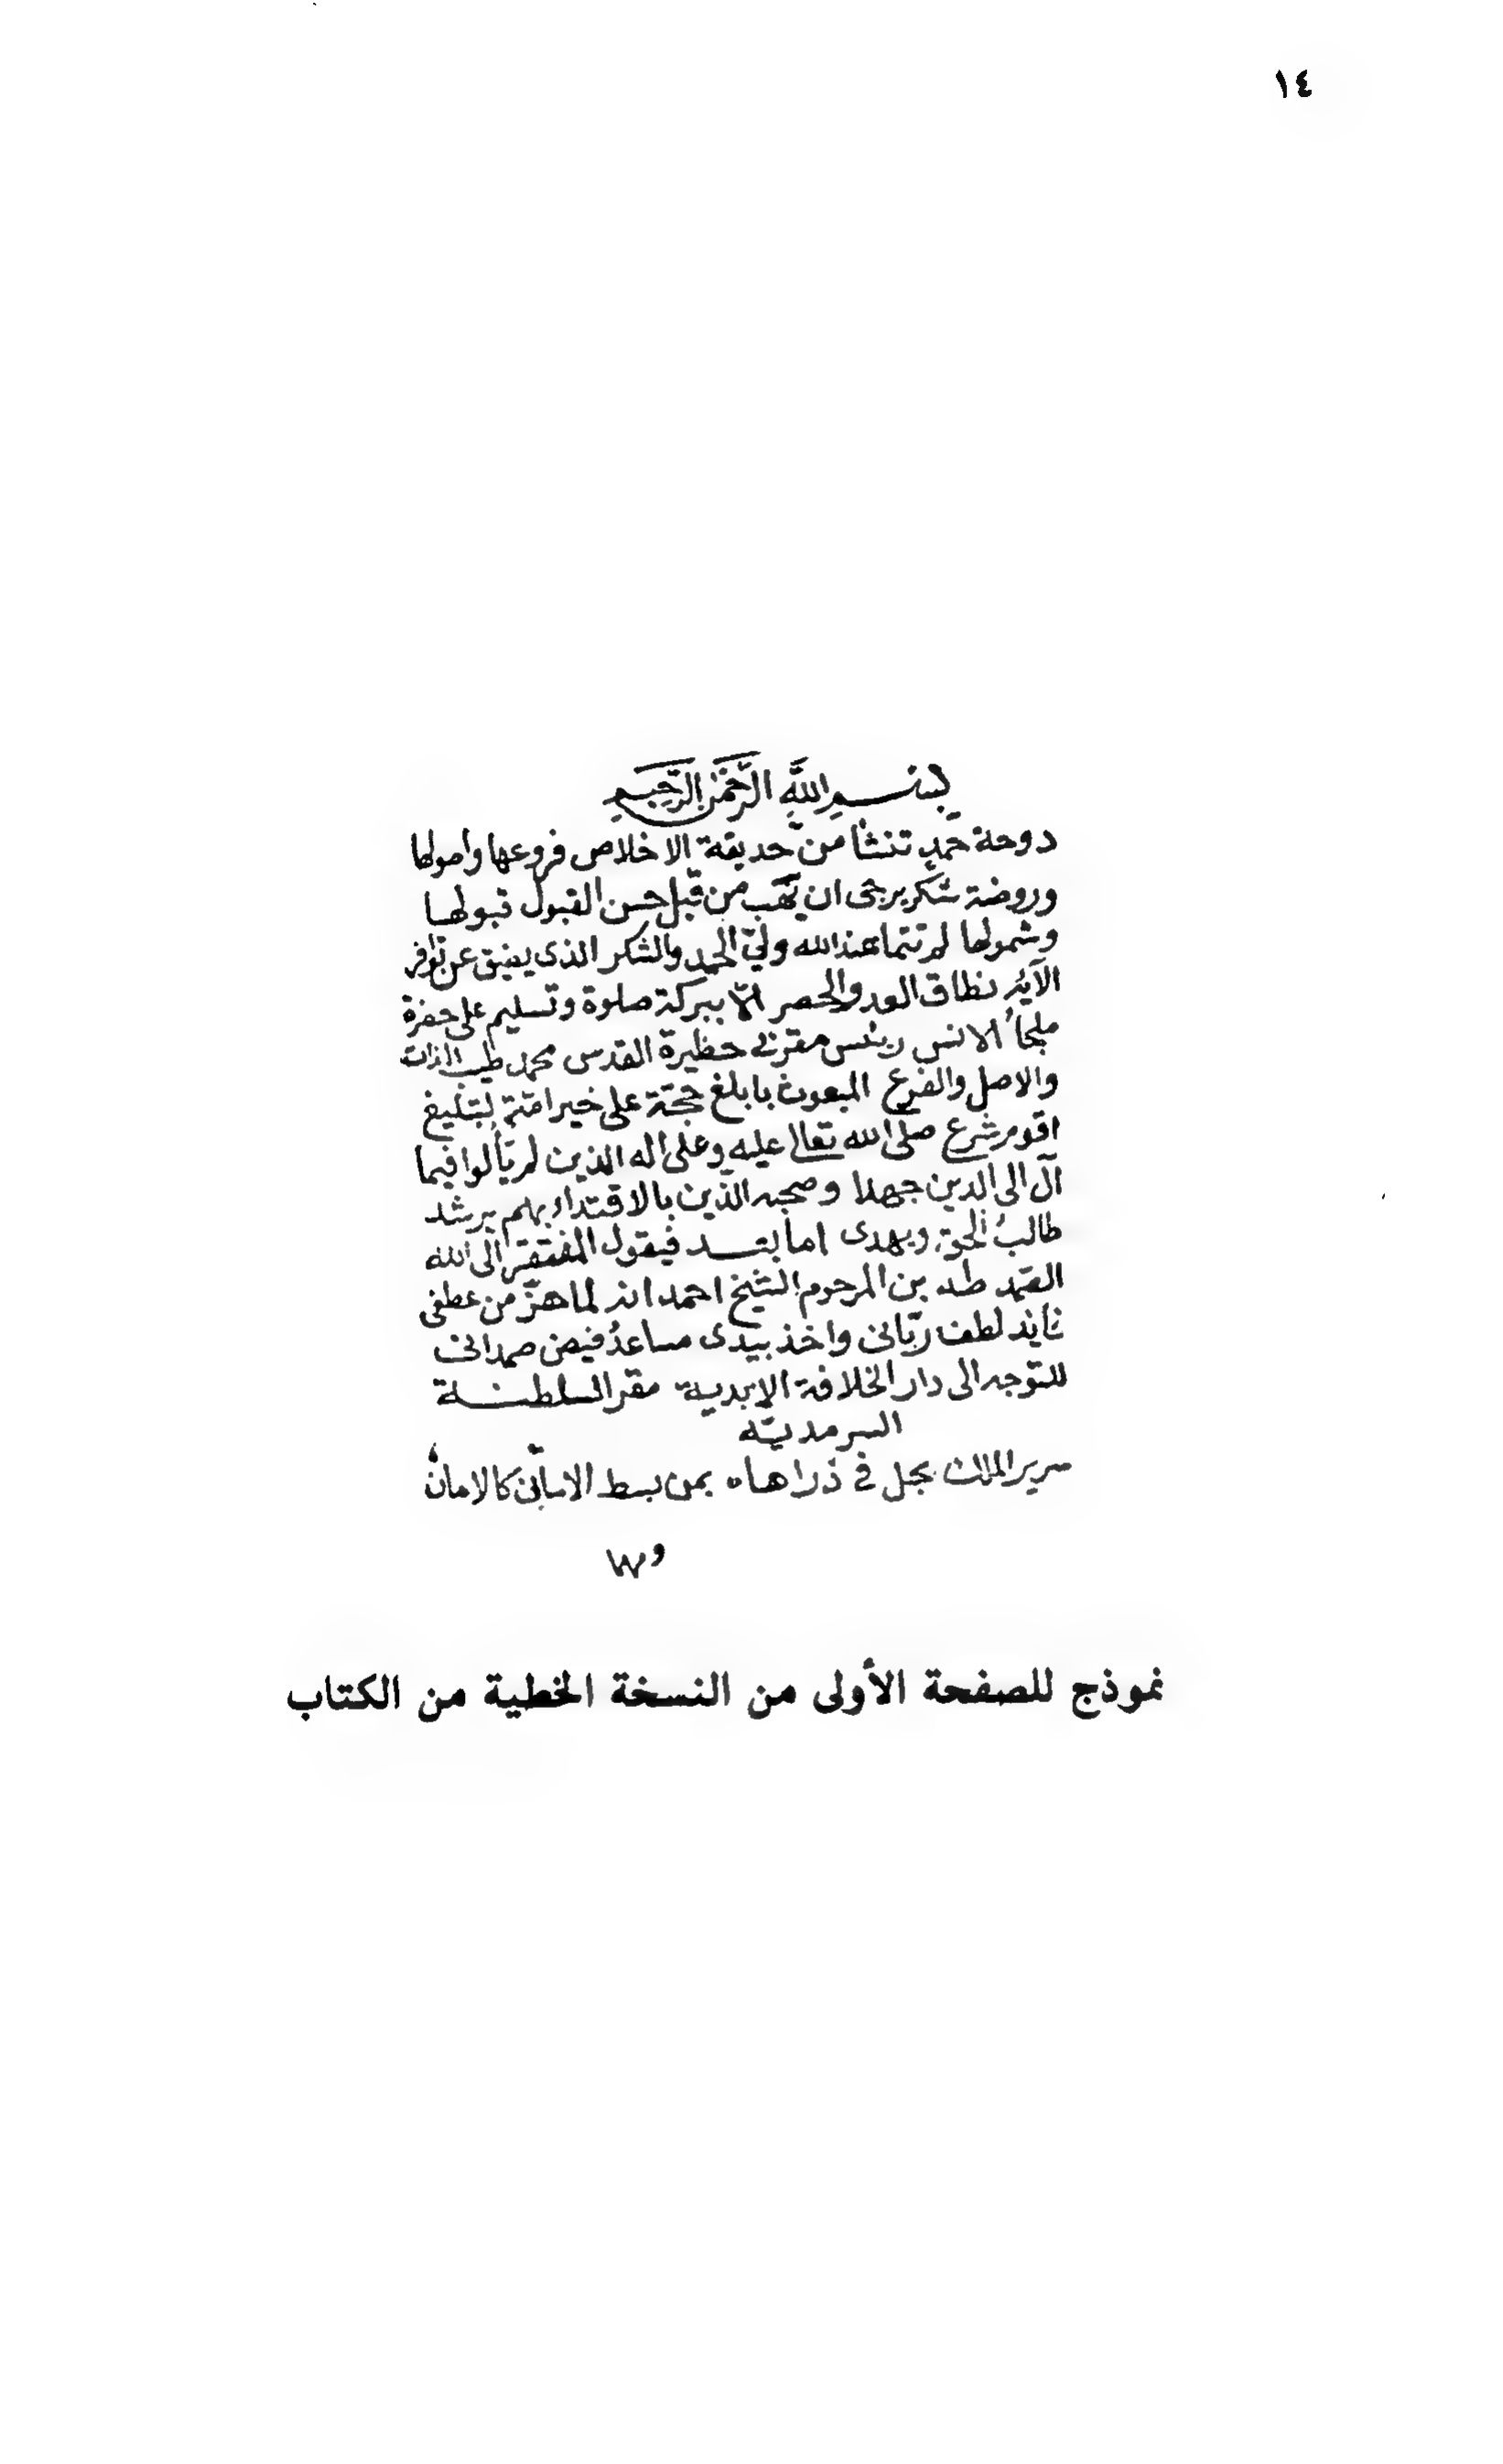 ١٤
بسم الله الرحمن الرحيم
دوحة حمدٍ تنشأ من حديقة الاخلاص فروعها واصولها
وروضة شكر يرجى ان تهب من قبل حسن القبول قبولها
وشمولها لم تتما هذا لله وليّ الحمد والشكر الذى يضيق عن توافر
الآيه نطاق العد والحصر الّا ببركة صلوة وتسليم على حضرة
ملجأ الانس رئيس مقربى حظيرة القدس محمد طيب الذات
والاصل والفرع المبعوث بابلغ حجّة على خير امّة لتبليغ
اقوم شرع صلى الله تعالى عليه وعلى اله الذين لم يألوا فيما
آل الى الدين جهدا وصحبه الذين بالاقتداء بهم يرشد
طالب الحق ويهدى اما بعد فيقول المفتقر الى الله
الصمد طه بن المرحوم الشيخ احمد انه لما هزّ من عطفى
لطف ربّانى واخذ بيدى مساعدُ فيض صمدانى
للتوجه الى دار الخلافة الابدية مقر السلطنة
السرمديّه
سرير الملك فى ذراها بمن بسط الامانى كالامان
نموذج للصفحة الأولى من النسخة الخطية من الكتاب